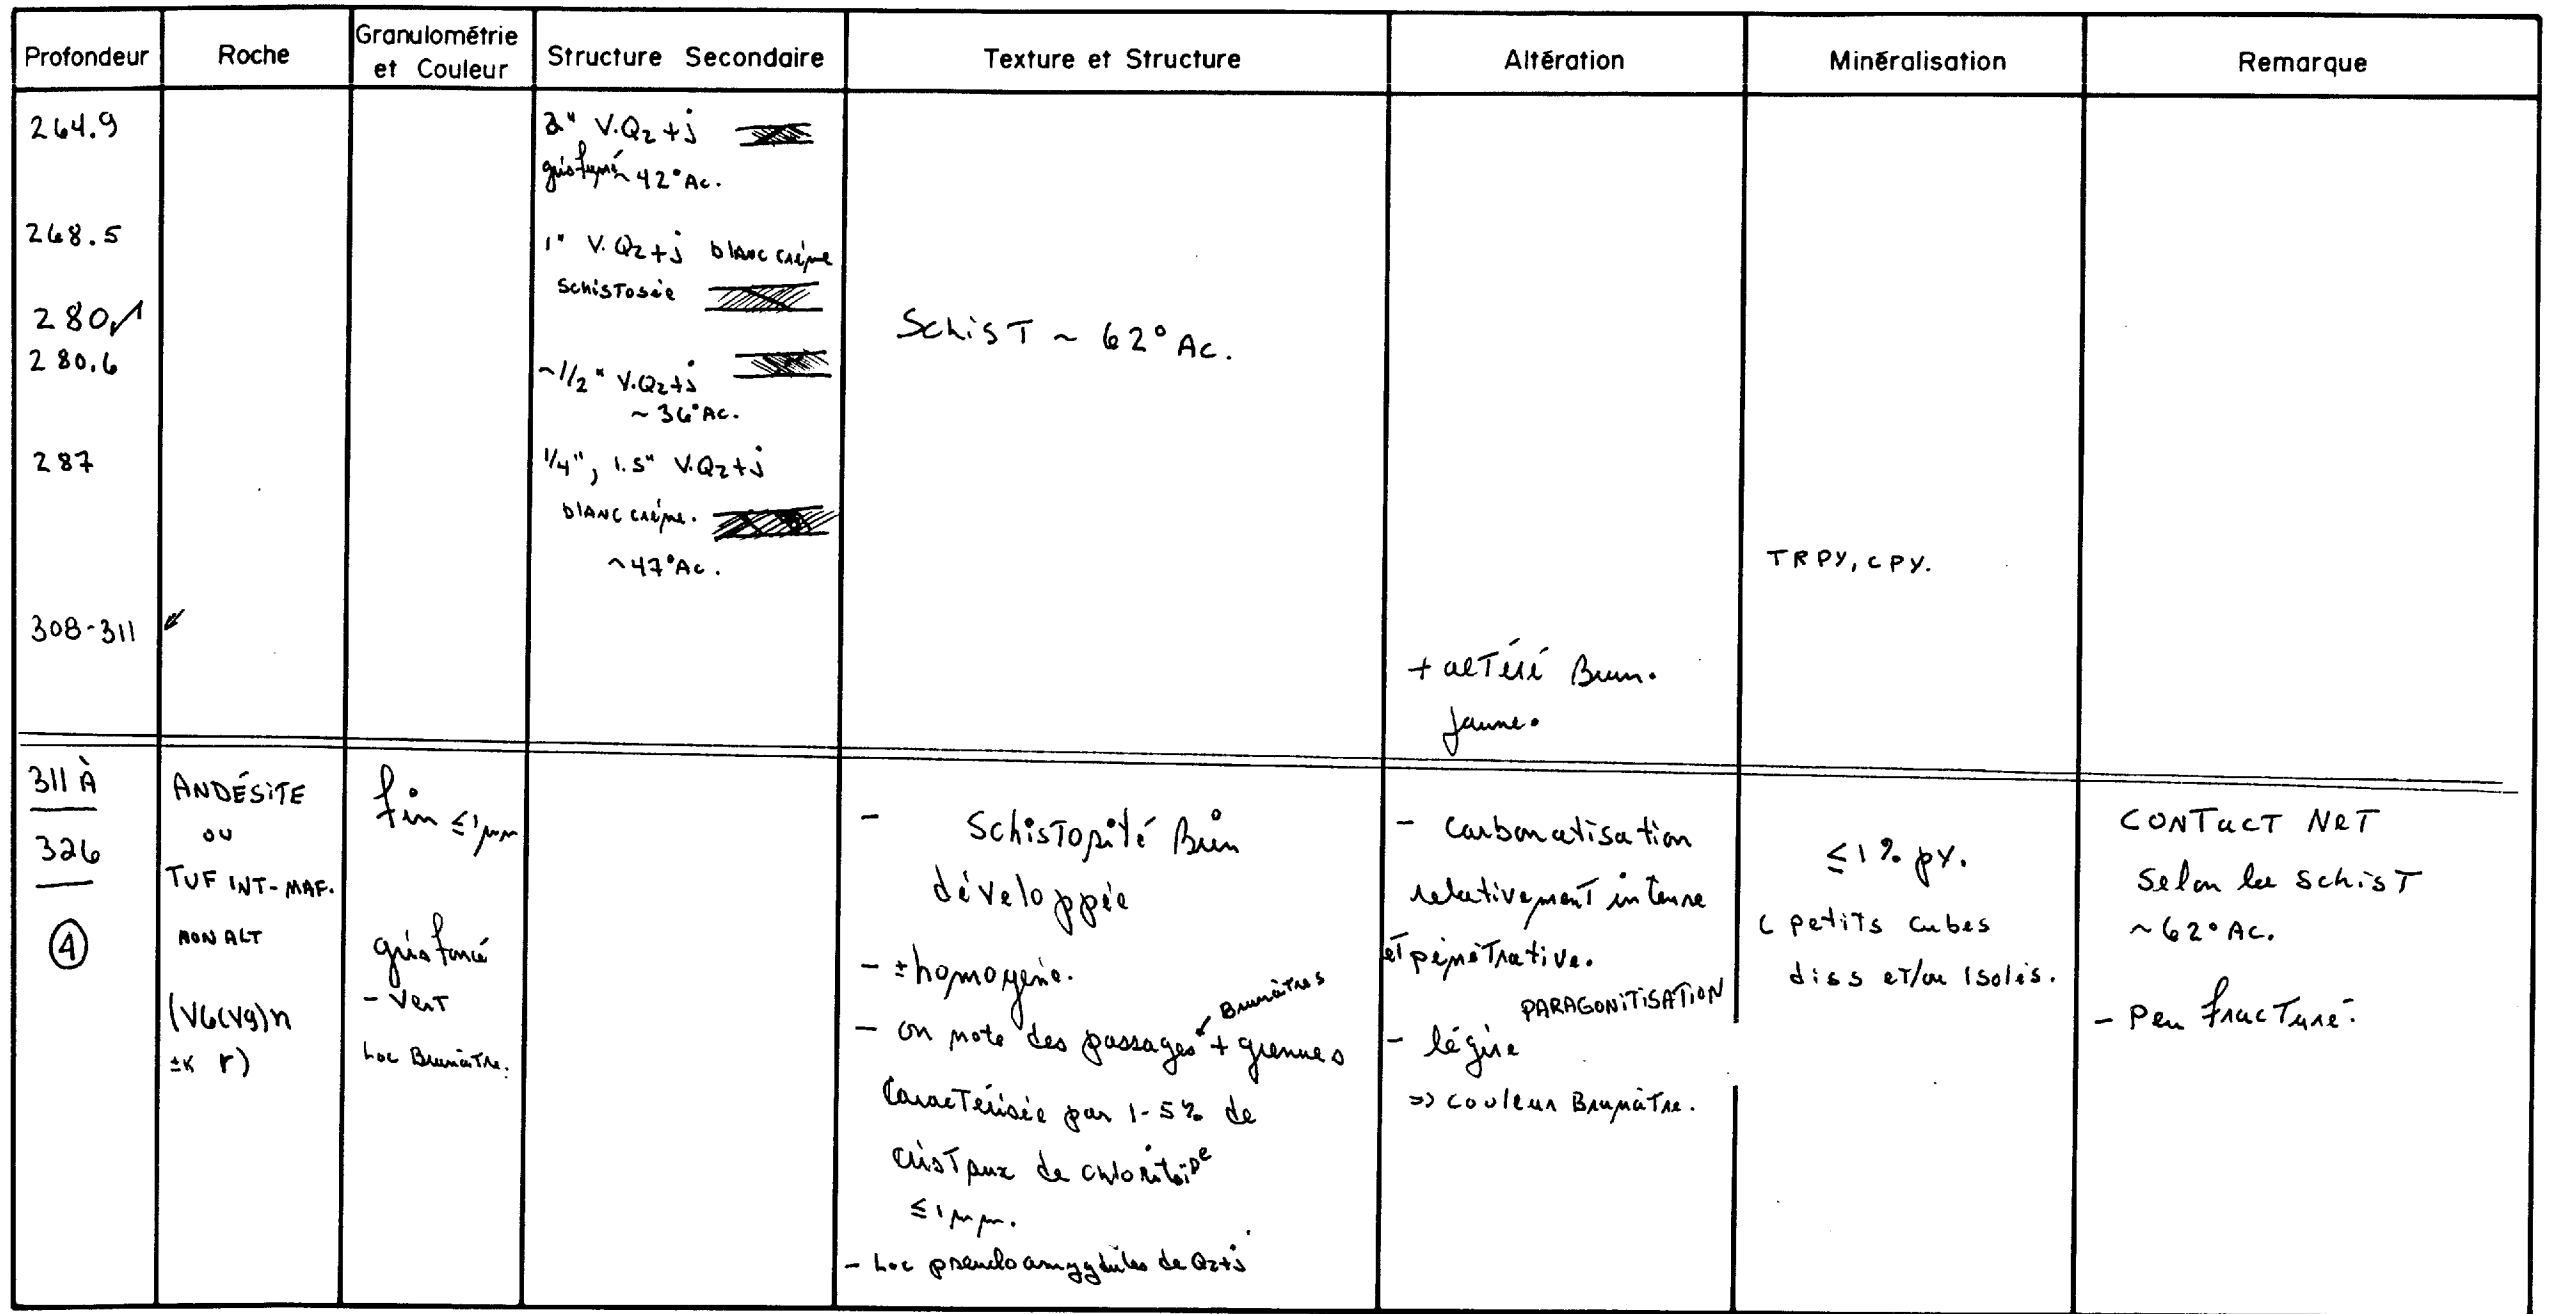 Profondeur Roche Granulométrie et Couleur Structure Secondaire Texture et Structure Altération Minéralisation Remarque
264.9 2" V.Qz+j
gris fumé ~42°Ac.
268.5 1" V.Qz+j blanc crème
schistosée
280
280.6 SchisT ~ 62° Ac.
~1/2" V.Qz+j
~36°Ac.
287 1/4", 1.5" V.Qz+j
blanc crème.
~47°Ac.
TR PY, CPY.
308-311
+ alTéré Brun.
jaune.
311 À
326
④
ANDÉSITE
ou
TUF INT-MAF.
NON ALT
(V6(V9)n
±K r)
fin ≤1mm
gris foncé
- VerT
Loc Brunâtre.
- SchisTosité Bien
développée
- ± homogène.
- on note des passages Brunâtres + grenues
CaracTérisée par 1-5% de
crisTaux de chloritoïde
≤1mm.
- Loc pseudoamygdules de Qz+j
- carbonatisation
relativemenT intense
eT pénéTrative.
PARAGONITISATION
- légère
=> couleur BrunâTre.
≤1% py.
C petits cubes
diss eT/ou Isolés.
CONTACT NET
Selon la SchisT
~62° AC.
- Peu fracTuré.